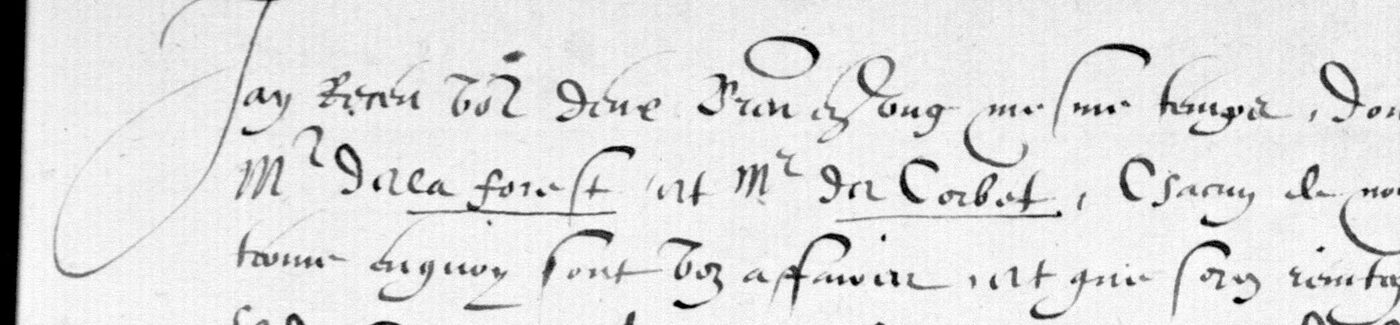 Jay Receu voz deux [...] en ung mesme temps, don
Mr de la forest et Mr de Corbet, Chacun de no
treuve en quoy sont voz affaires, et que serez